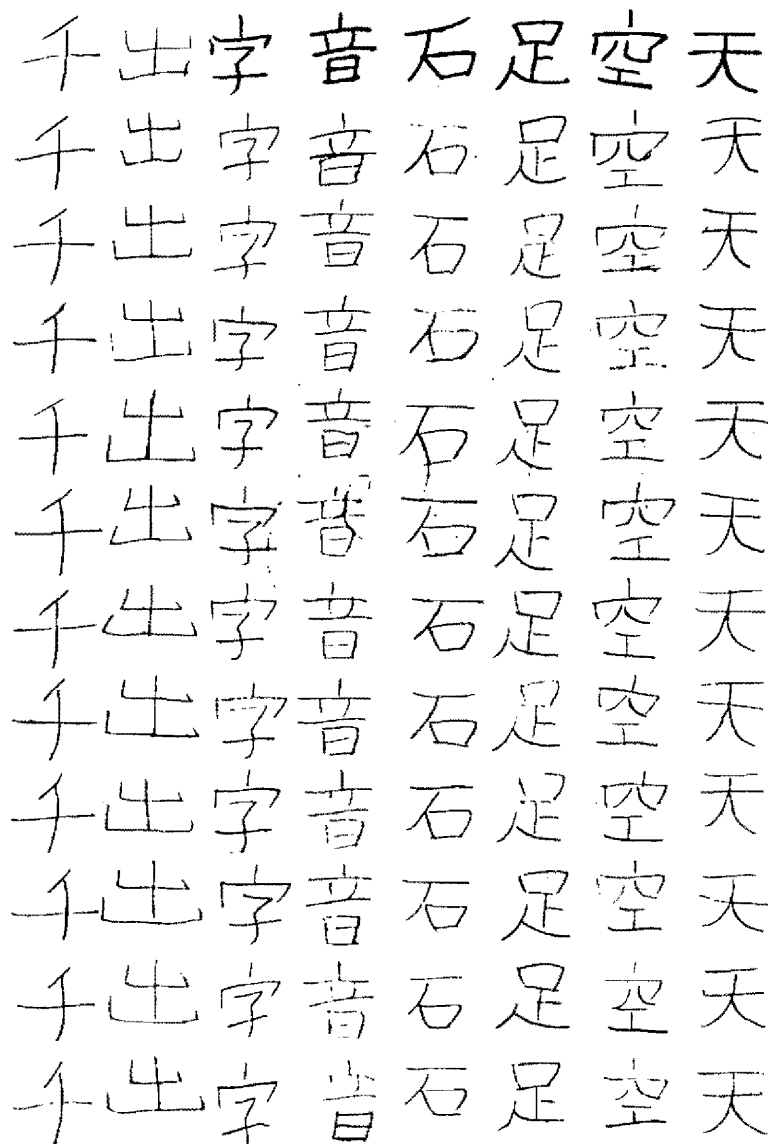 千出字音石足空天
千出字音石足空天
千出字音石足空天
千出字音石足空天
千出字音石足空天
千出字音石足空天
千出字音石足空天
千出字音石足空天
千出字音石足空天
千出字音石足空天
千出字音石足空天
千出字音石足空天